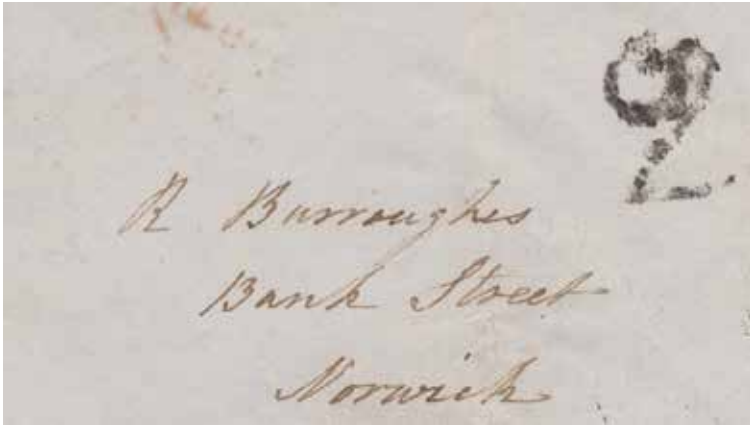 2
R Burroughes
Bank Street
Norwich